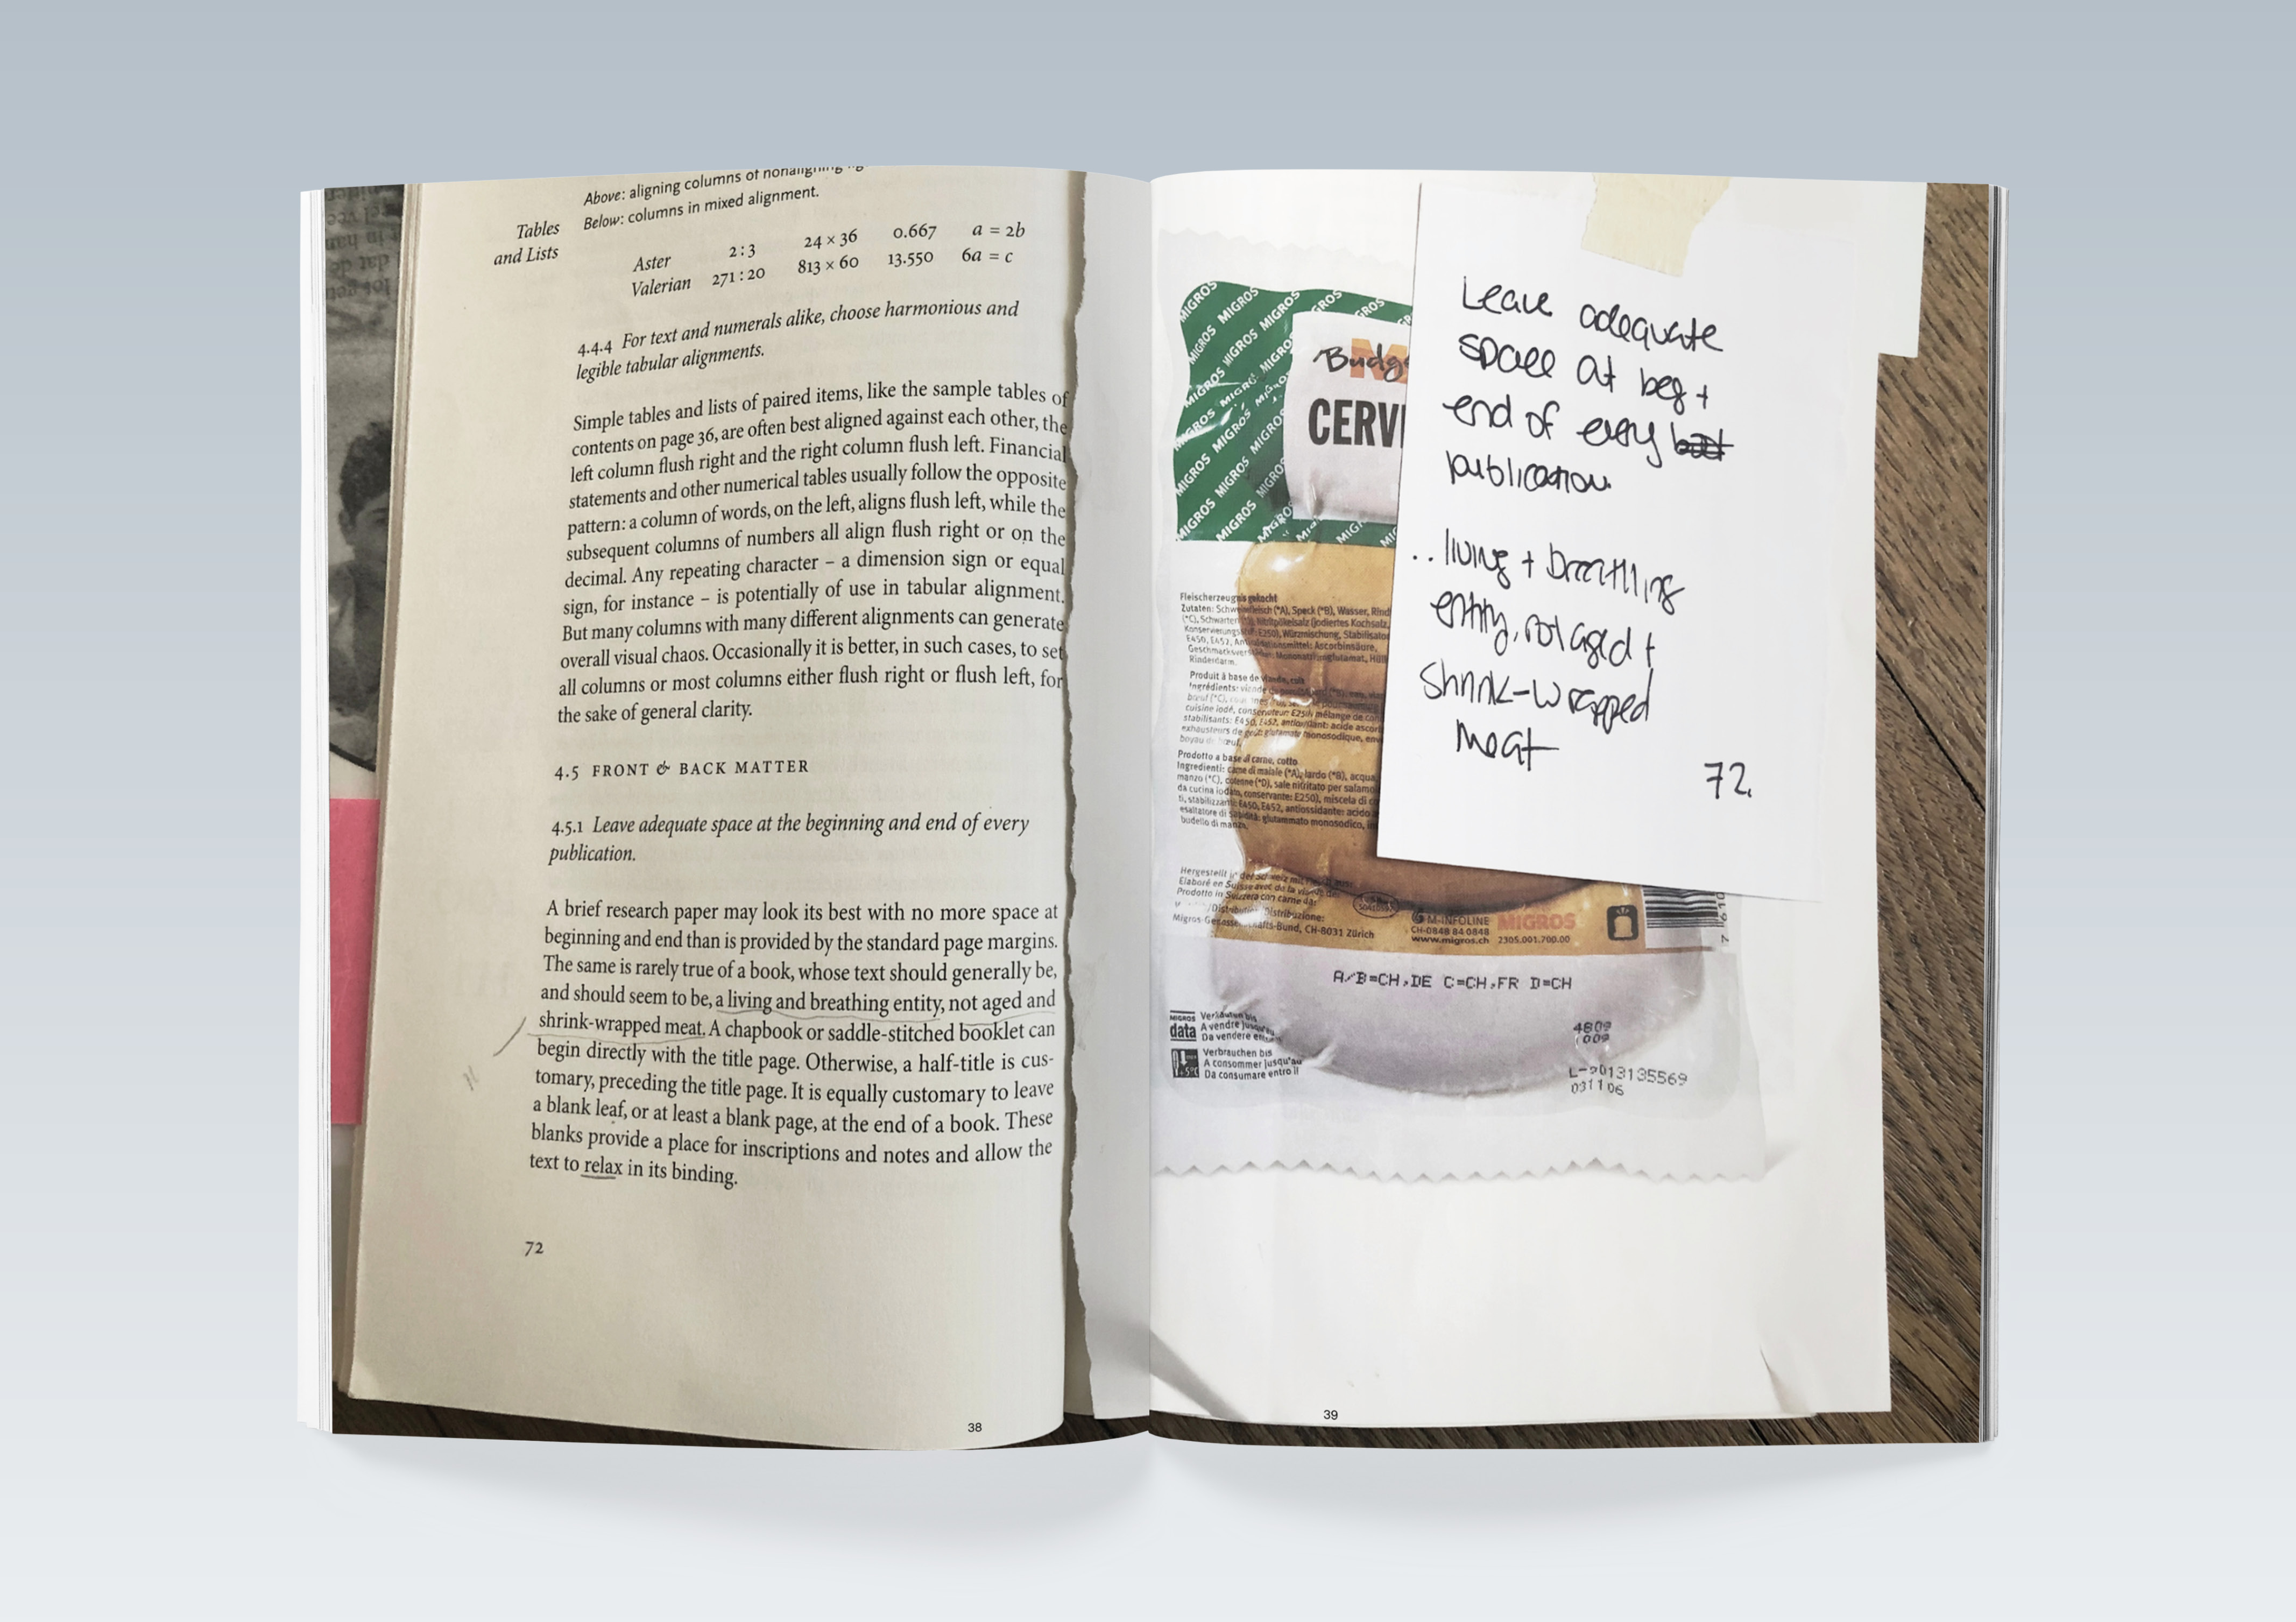 Above: aligning columns of nonaligning
Below: columns in mixed alignment.
Tables
and Lists
Aster 2:3 24 × 36 0.667 a = 2b
Valerian 271:20 813 × 60 13.550 6a = c
4.4.4 For text and numerals alike, choose harmonious and
legible tabular alignments.
Simple tables and lists of paired items, like the sample tables of
contents on page 36, are often best aligned against each other, the
left column flush right and the right column flush left. Financial
statements and other numerical tables usually follow the opposite
pattern: a column of words, on the left, aligns flush left, while the
subsequent columns of numbers all align flush right or on the
decimal. Any repeating character – a dimension sign or equal
sign, for instance – is potentially of use in tabular alignment.
But many columns with many different alignments can generate
overall visual chaos. Occasionally it is better, in such cases, to set
all columns or most columns either flush right or flush left, for
the sake of general clarity.
4.5 FRONT & BACK MATTER
4.5.1 Leave adequate space at the beginning and end of every
publication.
A brief research paper may look its best with no more space at
beginning and end than is provided by the standard page margins.
The same is rarely true of a book, whose text should generally be,
and should seem to be, a living and breathing entity, not aged and
shrink-wrapped meat. A chapbook or saddle-stitched booklet can
begin directly with the title page. Otherwise, a half-title is cus-
tomary, preceding the title page. It is equally customary to leave
a blank leaf, or at least a blank page, at the end of a book. These
blanks provide a place for inscriptions and notes and allow the
text to relax in its binding.
72
38
MIGROS MIGROS MIGROS MIGROS
Budg
CERV
Leave adequate
space at beg +
end of every
publication
.. living + breathing
entity, not aged +
shrink-wrapped
meat
72.
Fleischerzeugnis gekocht
Zutaten: Schweinefleisch (*A), Speck (*B), Wasser, Rind
(*C), Schwarten Nitritpökelsalz (jodiertes Kochsalz,
Konservierungs E250), Würzmischung, Stabilisato
E450, E452, Ascorbinsäure,
Mononatriumglutamat, Hüll
Rinderdarm.
Produit à base de viande, cuit
Ingrédients:
cuisine iodé, conservateur: E250), mélange de
stabilisants: E450, E452, antioxydant: acide ascor
exhausteurs de goût: glutamate monosodique, env
boyau de bœuf.
Prodotto a base di carne, cotto
Ingredienti: carne di maiale (*A), lardo (*B), acqua
manzo (*C), cotenne (*D), sale nitritato per salamo
da cucina iodato, conservante: E250), miscela di
stabilizzanti: E450, E452, antiossidante: acido
esaltatore di sapidità: glutammato monosodico, in
budello di manzo.
Hergestellt in der Schweiz mit
Elaboré en Suisse avec de la viande
Prodotto in Svizzera con carne da:
/Distribution/Distribuzione:
Migros-Genossenschafts-Bund, CH-8031 Zürich
M-INFOLINE
CH-0848 84 0848
www.migros.ch
MIGROS
2305.001.700.00
7 610
A/B=CH,DE C=CH,FR D=CH
MIGROS data
Verkaufen bis
A vendre jusqu'au
Da vendere entro
Verbrauchen bis
A consommer jusqu'au
Da consumare entro il
4809
L-2013135569
031106
39